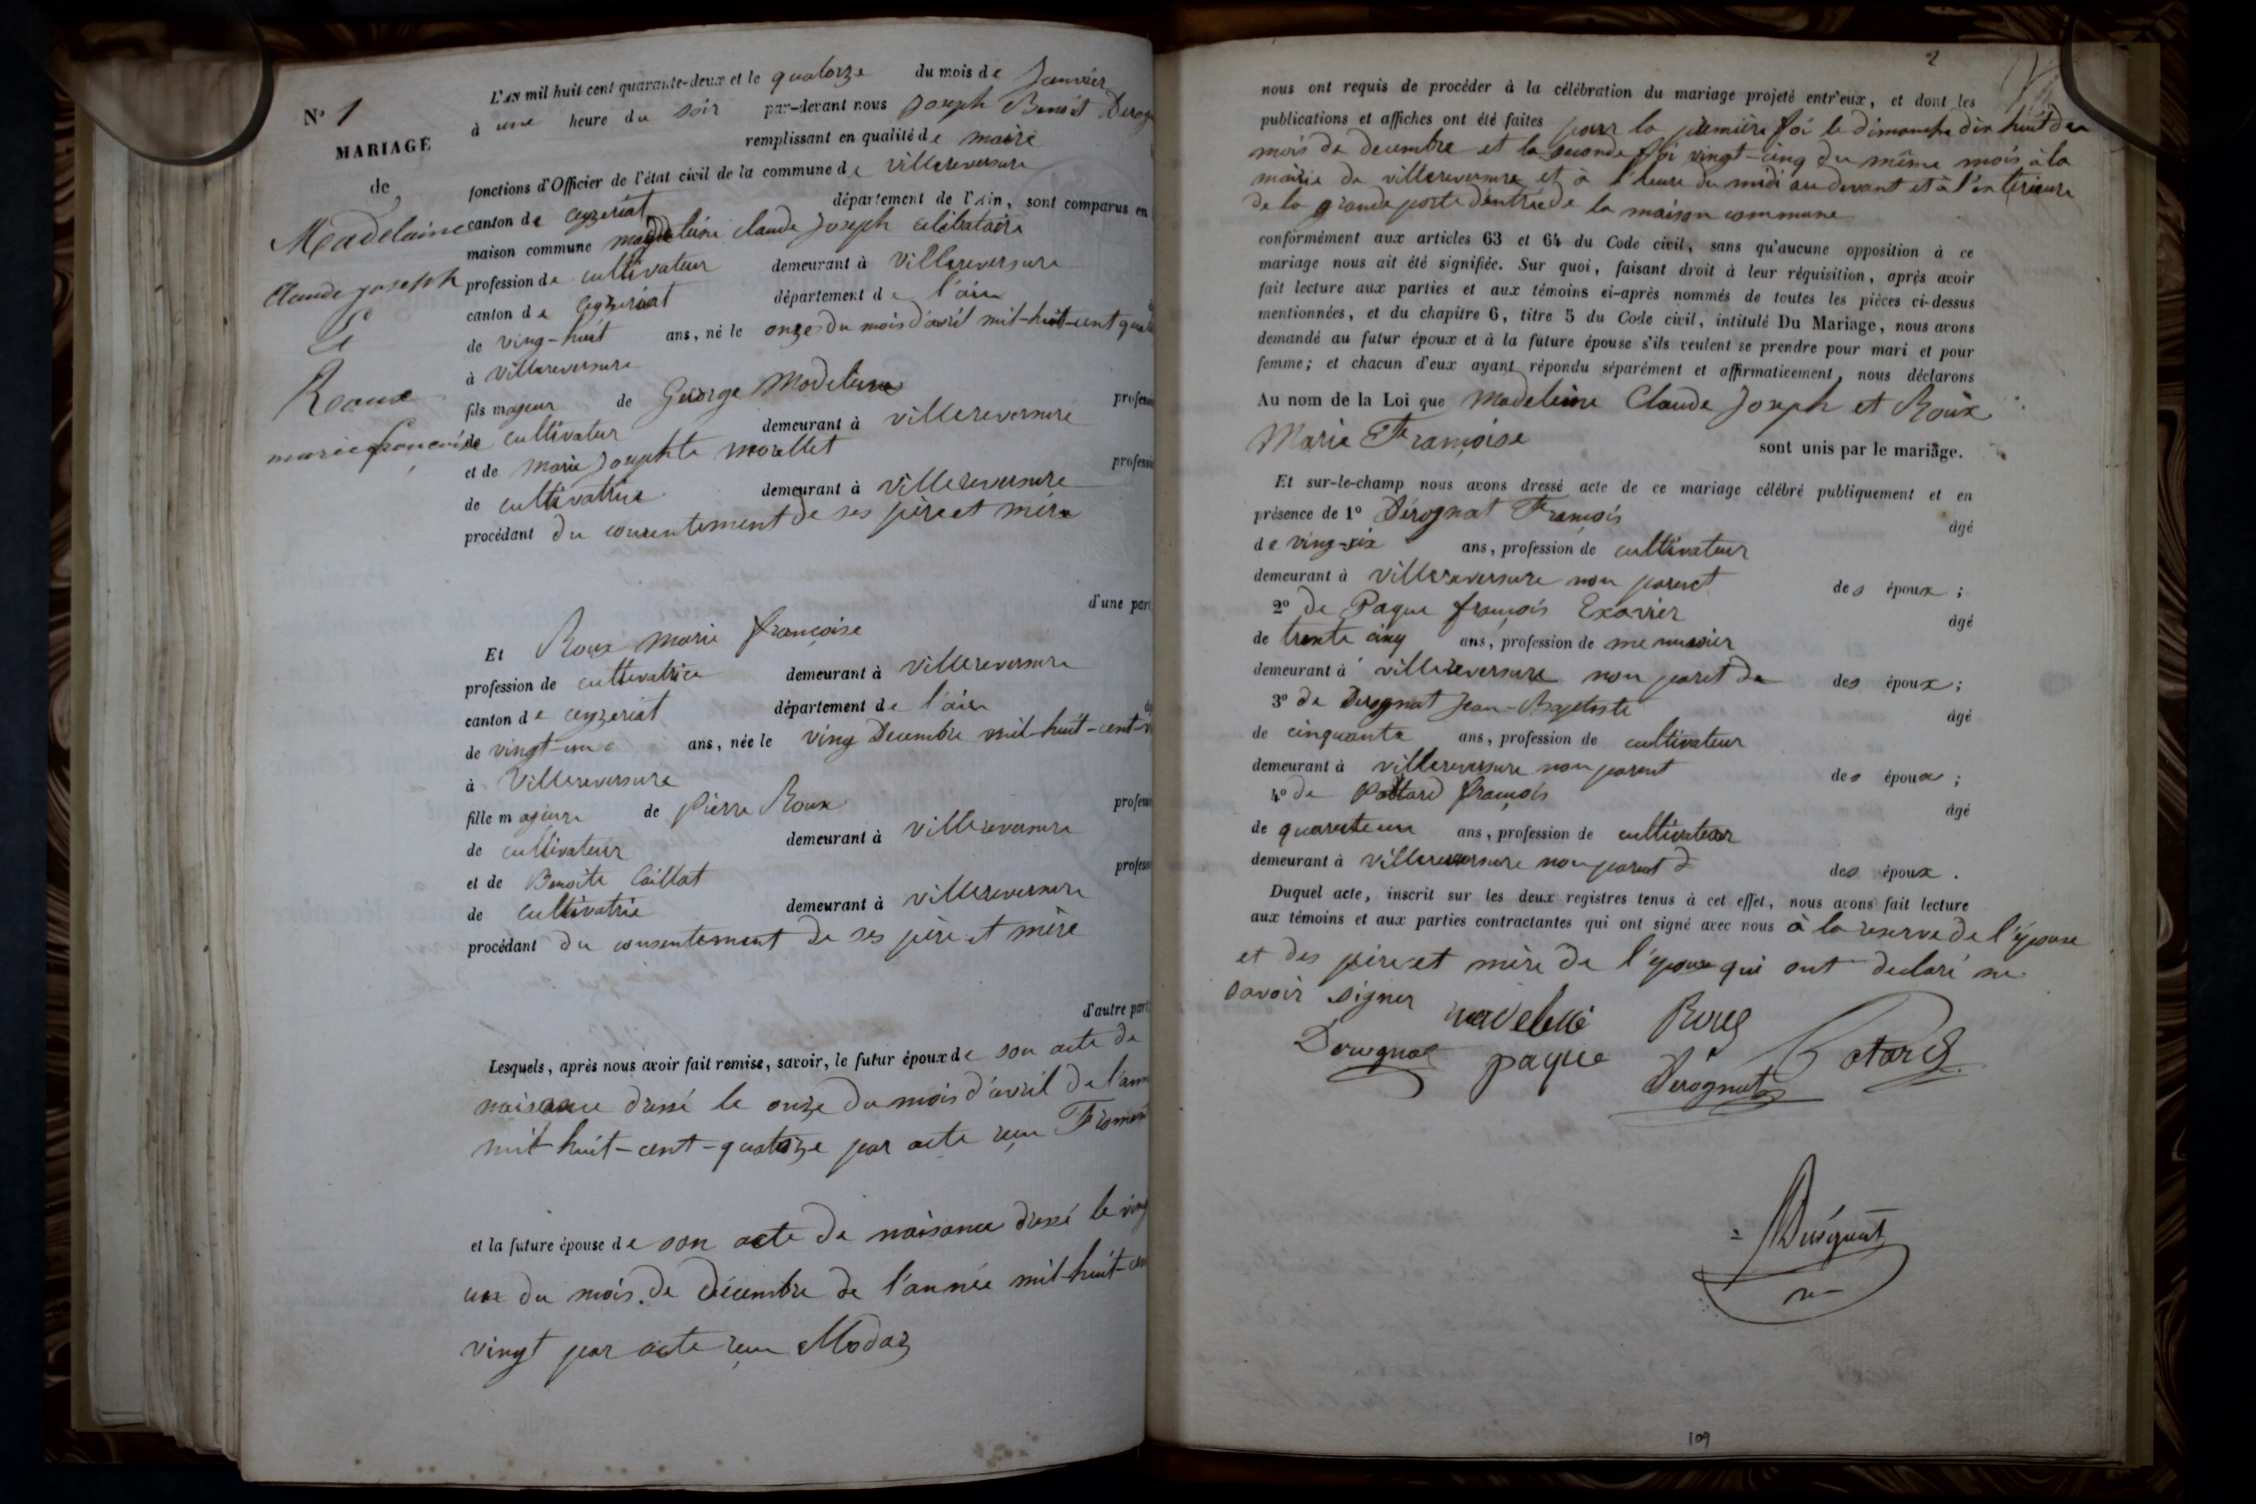 N° 1
MARIAGE
de
Madelaine
Claude joseph
Et
Roux
marie françoise
L'AN mil huit cent quarante-deux et le quatorze du mois de Janvier
à une heure du soir par-devant nous Joseph Benoit Derog
remplissant en qualité de maire
fonctions d'Officier de l'état civil de la commune de villereversure
canton de ceyzeriat département de l'Ain, sont comparus en
maison commune magdeleine claude Joseph celibataire
profession de cultivateur demeurant à villereversure
canton de ceyzeriat département de l'ain
de ving-huit ans, né le onze du mois d'avril mil-huit-cent quato
à villereversure
fils majeur de George Madeleine profession
de cultivateur demeurant à villereversure
et de marie Josephte morellet profession
de cultivatrice demeurant à villereversure
procédant du consentement de ses père et mère
d'une part
Et Roux marie françoise
profession de cultivatrice demeurant à villereversure
canton de ceyzeriat département de l'ain
de vingt-une ans, née le ving Decembre mil-huit-cent-v
à villereversure
fille majeure de pierre Roux profession
de cultivateur demeurant à villereversure
et de Benoite Caillat profession
de cultivatrie demeurant à villereversure
procédant du consentement de ses père et mère
d'autre part
Lesquels, après nous avoir fait remise, savoir, le futur époux de son acte de
naisance dressé le onze du mois d'avril de l'ann
mil-huit-cent-quatorze par acte reçu Froment
et la future épouse de son acte de naisance dressé le ving
une du mois de décembre de l'année mil-huit-cen
vingt par acte reçu Modas
2
nous ont requis de procéder à la célébration du mariage projeté entr'eux, et dont les
publications et affiches ont été faites pour la première foi le dimanche dix huit du
mois de decembre et la seconde foi vingt-cinq du même mois à la
mairie de villereversure et à l'heure du midi au devant et à l'exterieure
de la grande porte d'entrée de la maison commune
conformément aux articles 63 et 64 du Code civil, sans qu'aucune opposition à ce
mariage nous ait été signifiée. Sur quoi, faisant droit à leur réquisition, après avoir
fait lecture aux parties et aux témoins ci-après nommés de toutes les pièces ci-dessus
mentionnées, et du chapitre 6, titre 5 du Code civil, intitulé Du Mariage, nous avons
demandé au futur époux et à la future épouse s'ils veulent se prendre pour mari et pour
femme; et chacun d'eux ayant répondu séparément et affirmativement, nous déclarons
Au nom de la Loi que Madeleine Claude Joseph et Roux
Marie Françoise sont unis par le mariage.
Et sur-le-champ nous avons dressé acte de ce mariage célébré publiquement et en
présence de 1° Dérognat François âgé
de ving-six ans, profession de cultivateur
demeurant à villereversure non parent des époux;
2° de Paque françois Exavier âgé
de trente cinq ans, profession de menuisier
demeurant à villereversure non paret de des époux;
3° de Derognat Jean-Baptiste âgé
de cinquante ans, profession de cultivateur
demeurant à villereversure non parent des époux;
4° de Pottard françois âgé
de quarente un ans, profession de cultivateur
demeurant à villereversure non parent d des époux.
Duquel acte, inscrit sur les deux registres tenus à cet effet, nous avons fait lecture
aux témoins et aux parties contractantes qui ont signé avec nous à la reserve de l'épouse
et des père et mère de l'époux qui ont declaré ne
savoir signer
madeleine Roux
Derognat paque Dérognat Potard
Dérognat
109